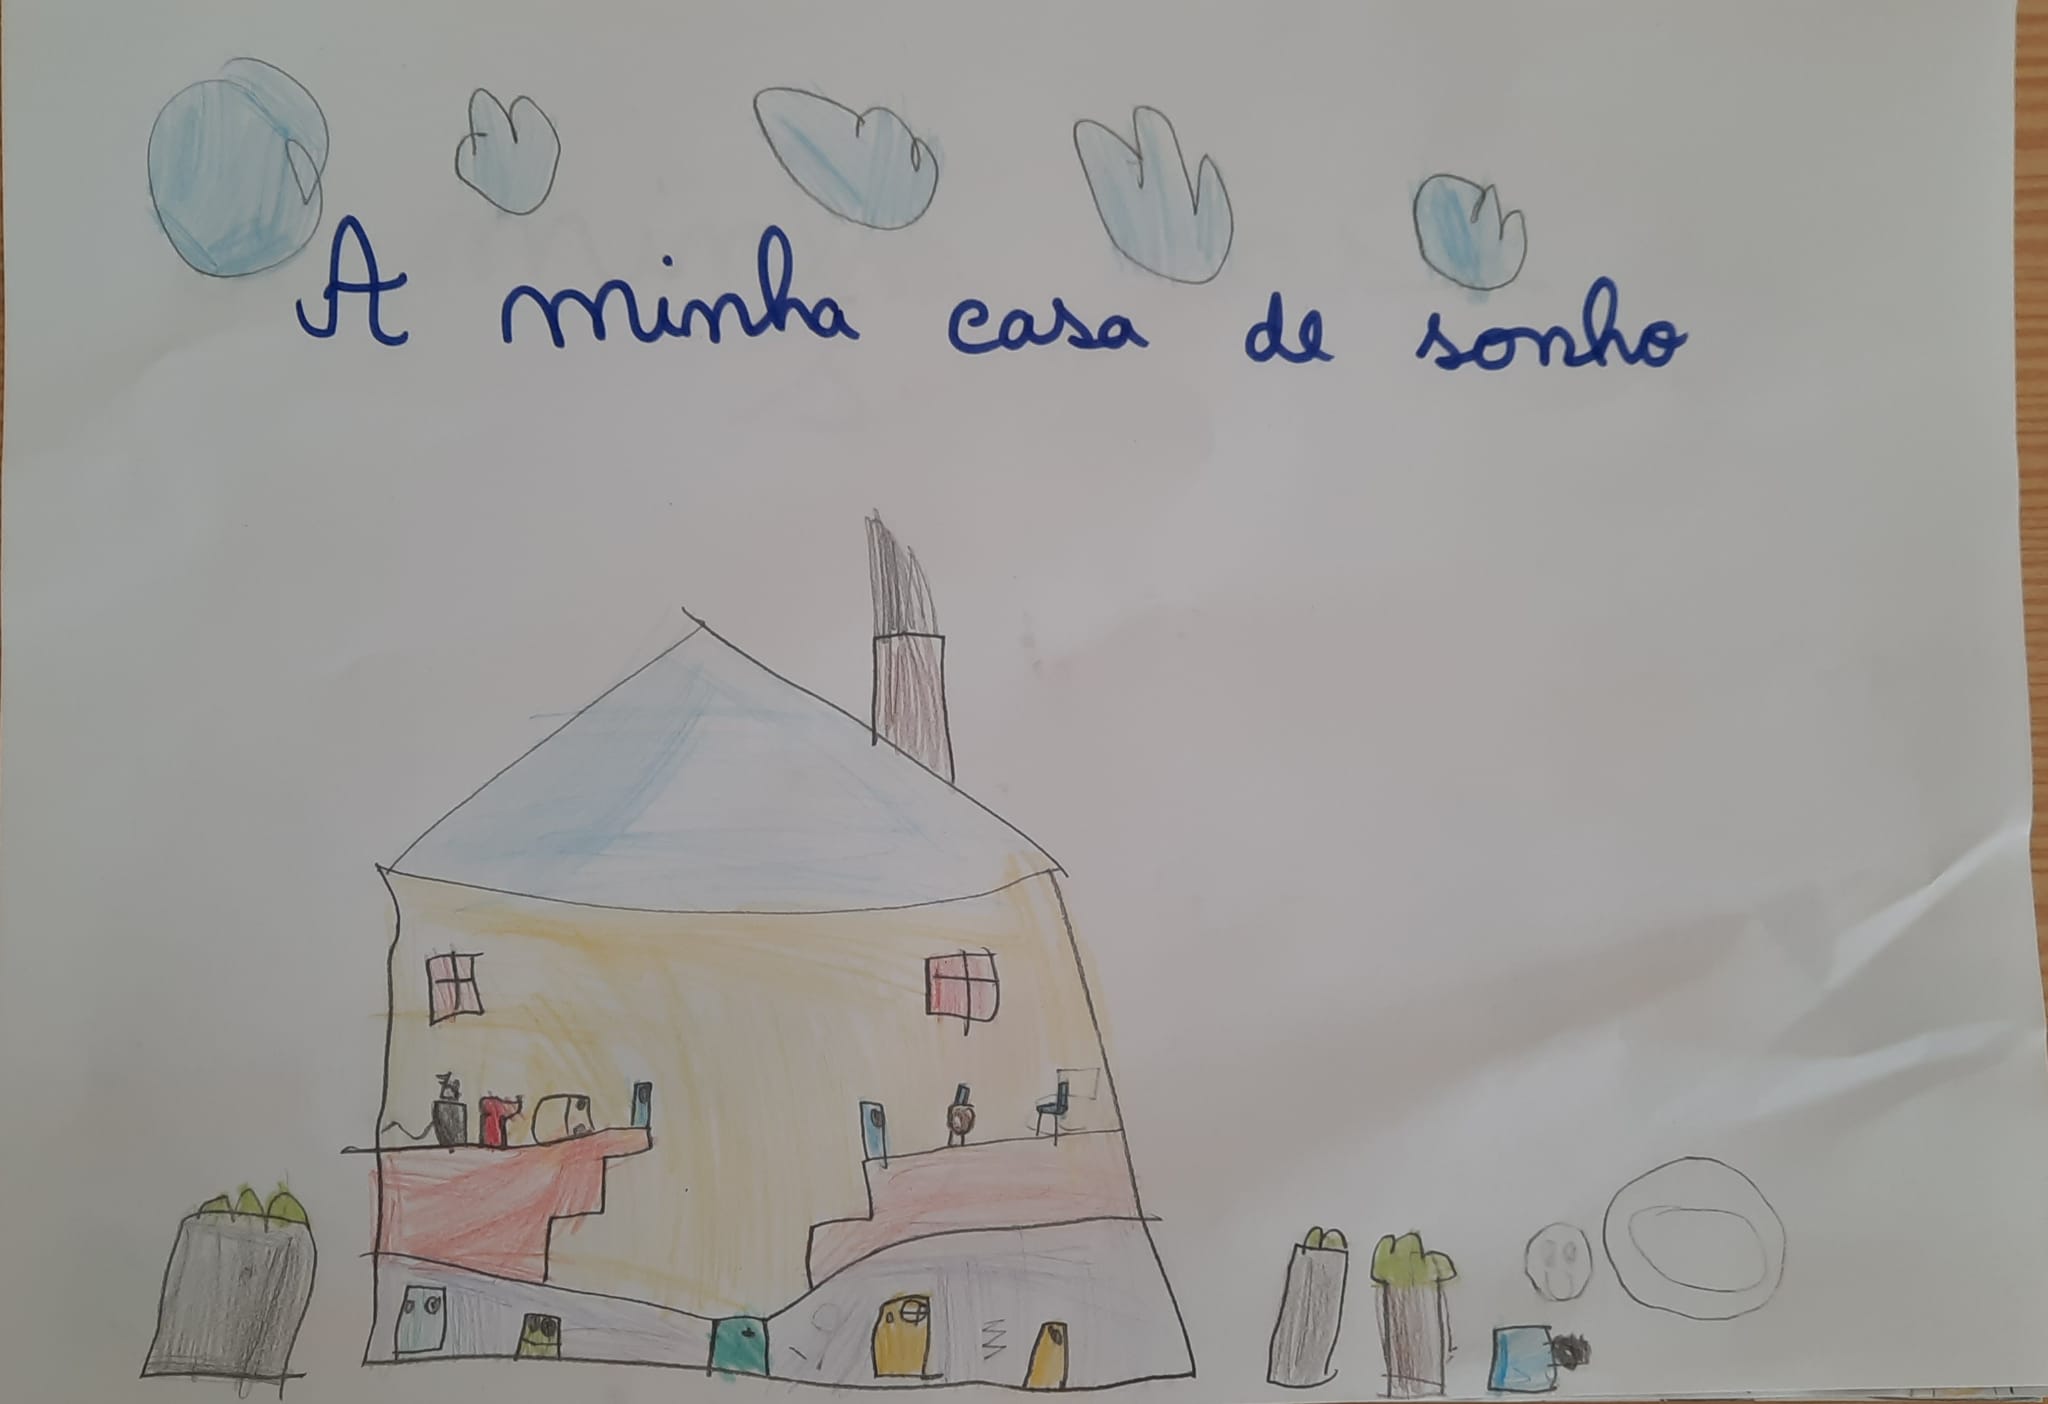 A minha casa de sonho